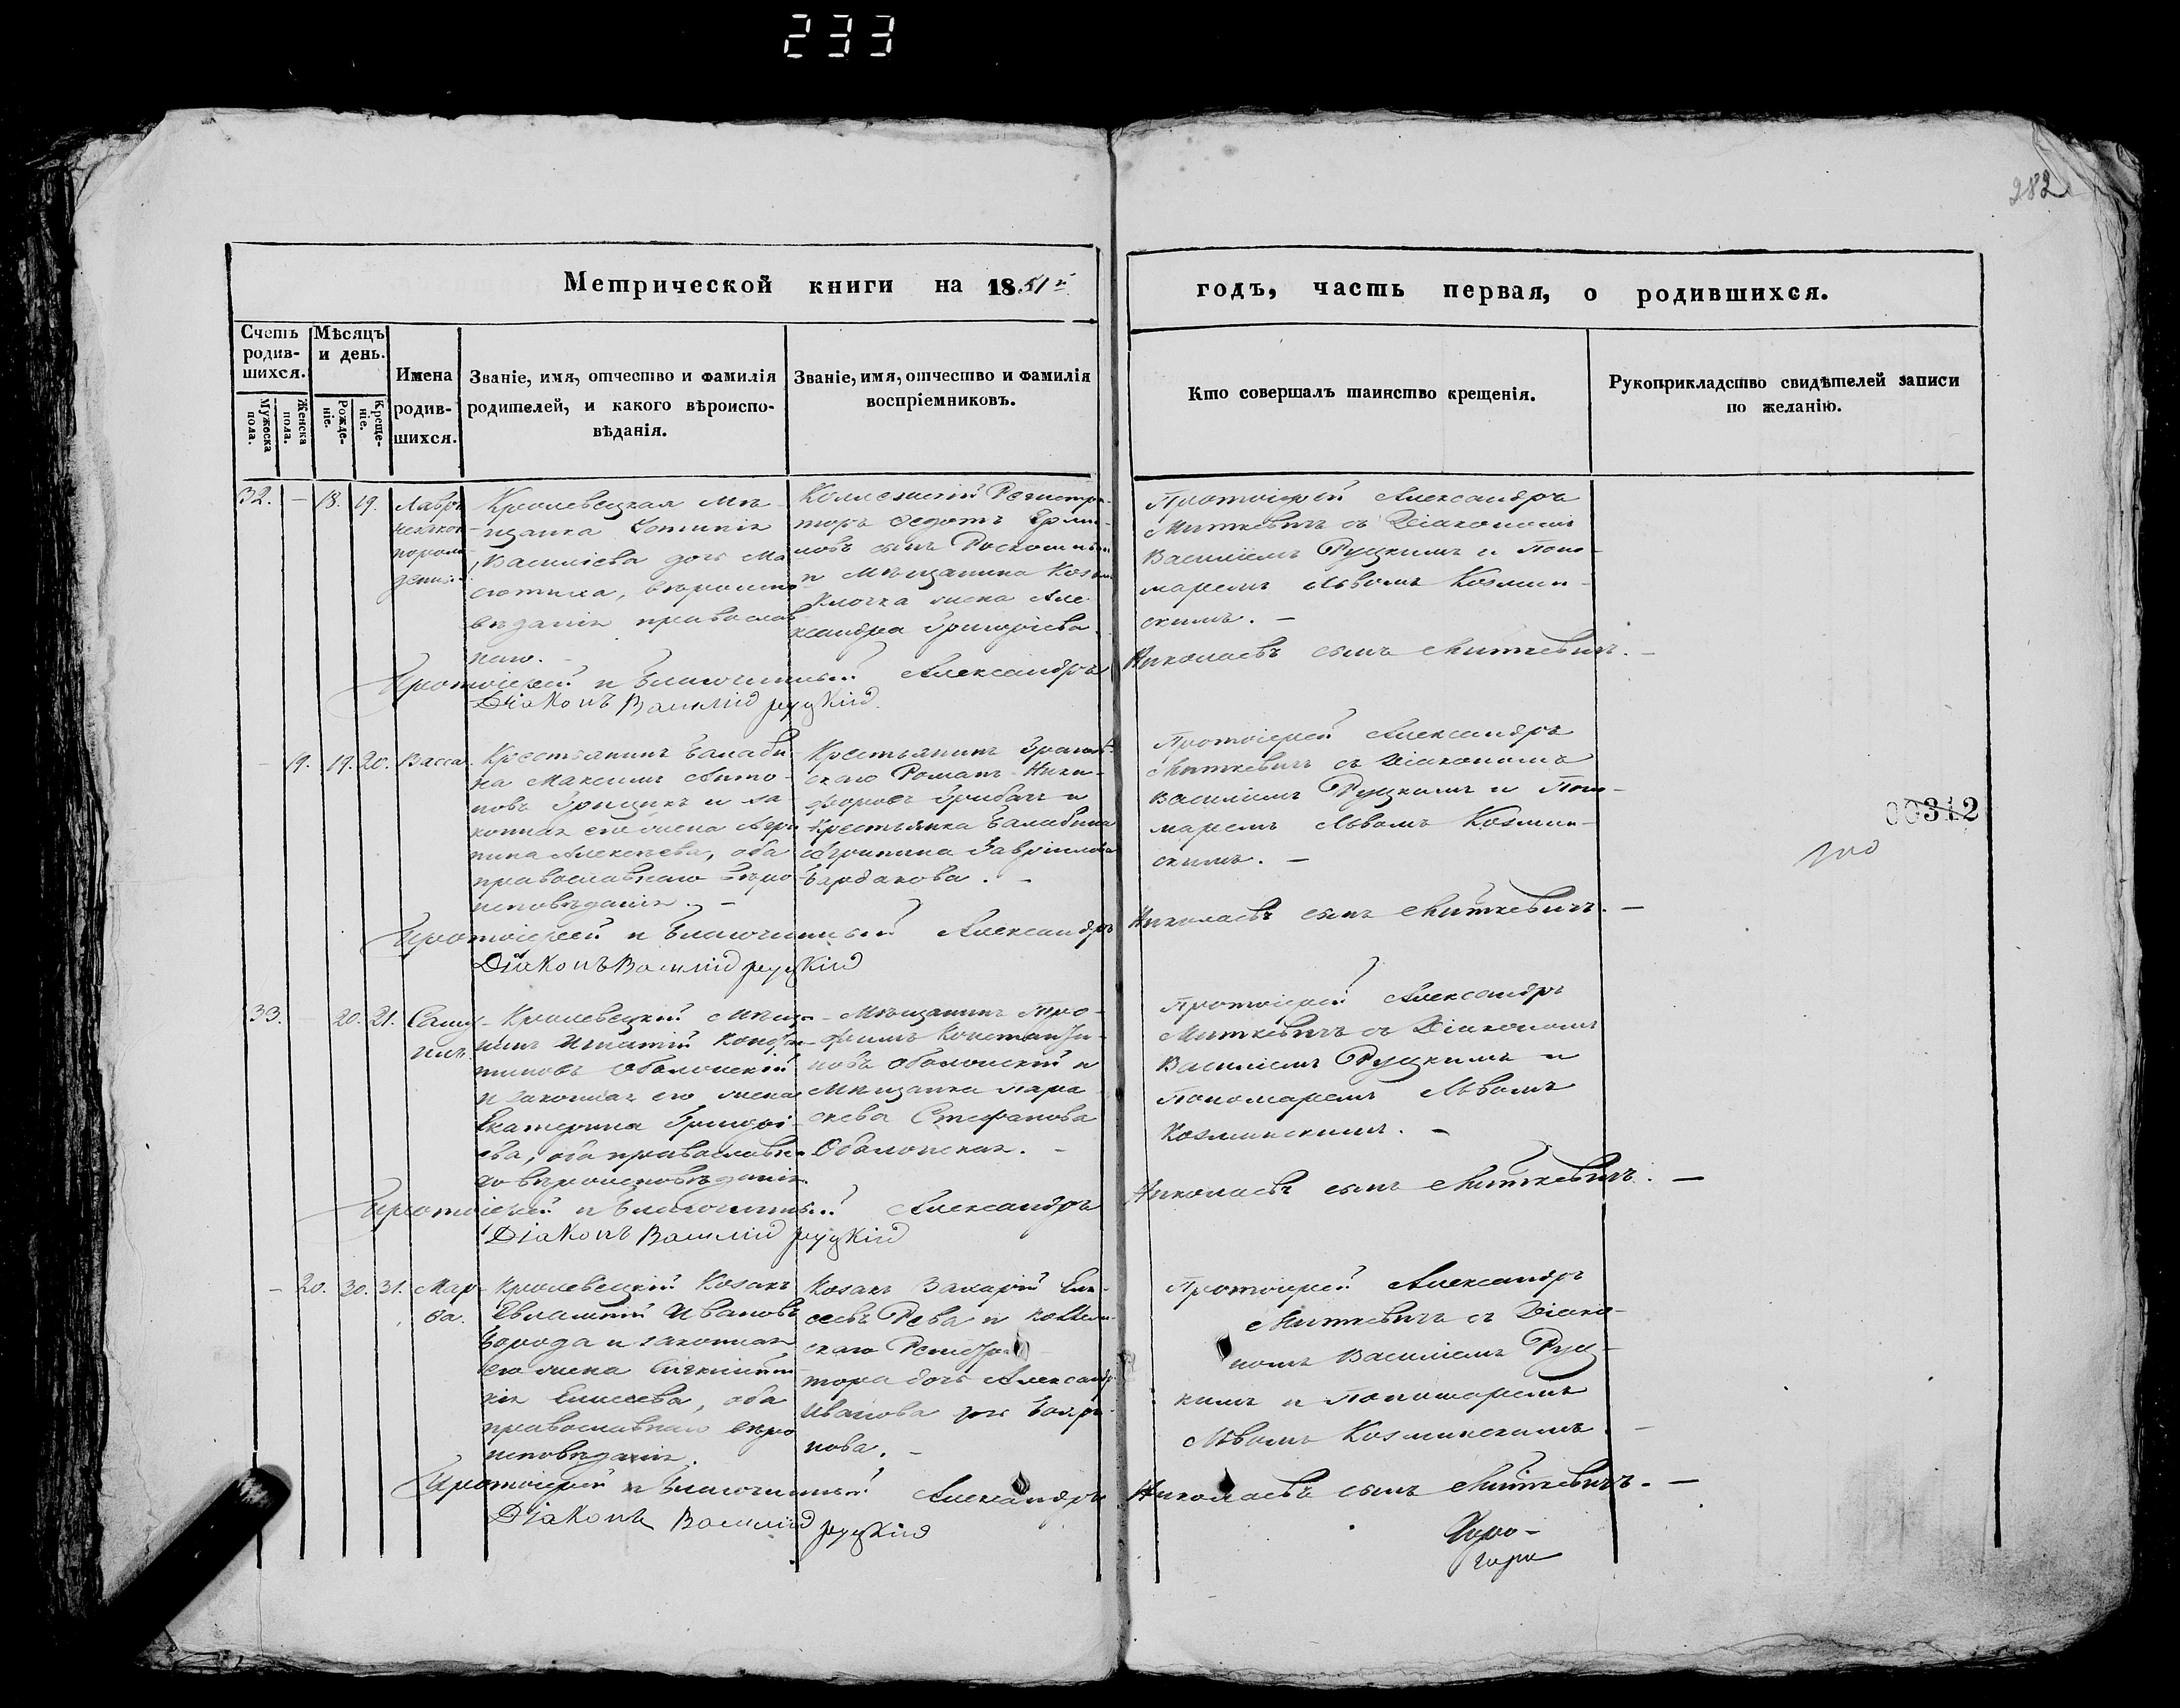 233
282
Метрической книги на 1851й
годъ, часть первая, о родившихся.
Счетъ родив-шихся.
Мужеска пола.
Женска пола.
Мѣсяцъ и день.
Рожде-ніе.
Креще-ніе.
Имена
родив-
шихся.
Званіе, имя, отчество и фамилія
родителей, и какого вѣроиспо-
вѣданія.
Званіе, имя, отчество и фамилія
воспріемниковъ.
Кто совершалъ таинство крещенія.
Рукоприкладство свидѣтелей записи
по желанію.
32. — 18. 19.
Лавръ
незакон
порож
Кролевецкая мѣ-
щанка
Василіева дочь
вѣроиспо-
вѣданія православ
наго.
Коллежскій Регистра-
торъ Федотъ
новъ сынъ
и мѣщанина
жена Але-
ксандра Григоріева.
Протоіерей Александръ
Миткевичъ съ Діакономъ
Василіемъ Руцкимъ и Поно-
маремъ Львомъ Козмин-
скимъ. —
Протоіерей и Благочинный Александръ Николаевъ сынъ Миткевичъ. —
Діаконъ Василій Руцкій.
— 19. 19. 20. Васса.
Крестьянинъ Балаби-
на Максимъ Анто-
новъ Грицикъ и за-
конная его жена Агри-
пина Алексѣева, оба
православнаго вѣро-
исповѣданія. —
Крестьянинъ
скаго Романъ Ники-
форовъ Грибачъ и
Крестьянка Балабина
Агрипина Гавріилова
Бардакова. —
Протоіерей Александръ
Миткевичъ съ Діакономъ
Василіемъ Руцкимъ и Поно-
маремъ Львомъ Козмин-
скимъ. —
00312
Протоіерей и Благочинный Александръ Николаевъ сынъ Миткевичъ. —
Діаконъ Василій Руцкій
33. — 20. 21. Саму-
илъ.
Кролевецкій мѣща-
нинъ Игнатій Констан-
тиновъ Оболонскій
и законная его жена
Екатерина Григорі-
ева, оба православна-
го вѣроисповѣданія.
Мѣщанинъ Тро-
фимъ Константи-
новъ Оболонскій и
мѣщанка Пара-
скева Стефанова
Оболонская. —
Протоіерей Александръ
Миткевичъ съ Діакономъ
Василіемъ Руцкимъ и
Пономаремъ Львомъ
Козминскимъ. —
Протоіерей и Благочинный Александръ Николаевъ сынъ Миткевичъ. —
Діаконъ Василій Руцкій
— 20. 30. 31. Мар-
ѳа.
Кролевецкій Козакъ
Евлампій Ивановъ
Борода и законная
его жена
Елисеева, оба
православнаго вѣро
исповѣданія.
Козакъ Захарій Ели-
сеевъ Рева и Коллеж-
скаго Регистра-
тора дочь Александра
Иванова
нова. —
Протоіерей Александръ
Миткевичъ съ Діако-
номъ Василіемъ Руц-
кимъ и Пономаремъ
Львомъ Козминскимъ. —
Протоіерей и Благочинный Александръ Николаевъ сынъ Миткевичъ. —
Діаконъ Василій Руцкій